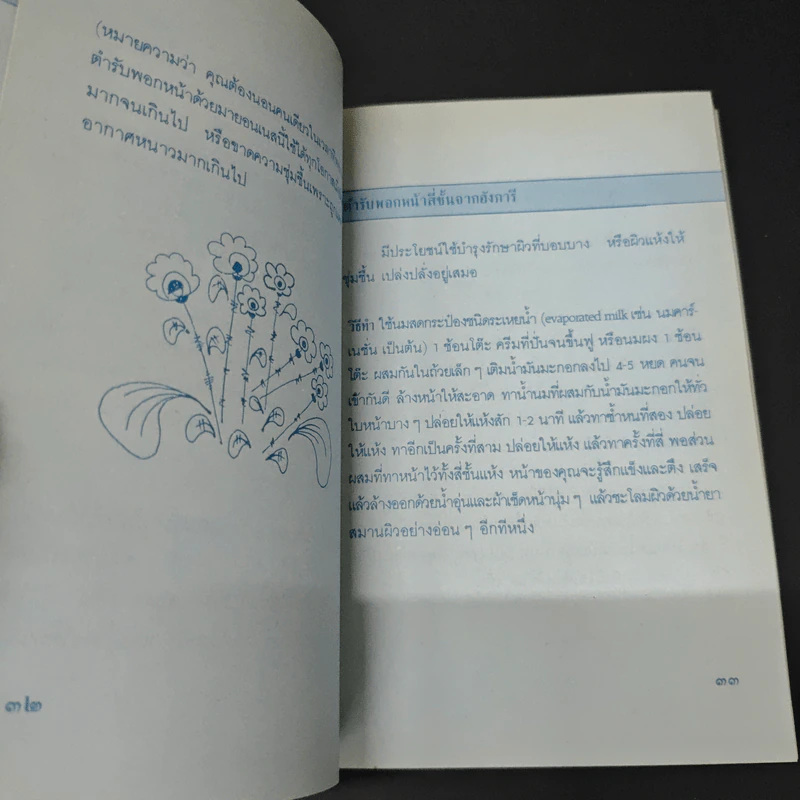 (หมายความว่า คุณต้องนอนคนเดียวใน
ตำรับพอกหน้าด้วยมายองเนสนี้ใช้ได้ทุกโอกาส
มากจนเกินไป หรือขาดความชุ่มชื้นเพราะถูก
อากาศหนาวมากเกินไป
๓๒
ตำรับพอกหน้าสี่ชั้นจากฮังการี
มีประโยชน์ใช้บำรุงรักษาผิวที่บอบบาง หรือผิวแห้งให้
ชุ่มชื้น เปล่งปลั่งอยู่เสมอ
วิธีทำ ใช้นมสดกระป๋องชนิดระเหยน้ำ (evaporated milk เช่น นมคาร์-
เนชั่น เป็นต้น) 1 ช้อนโต๊ะ ครีมที่ปั่นจนขึ้นฟู หรือนมผง 1 ช้อน
โต๊ะ ผสมกันในถ้วยเล็ก ๆ เติมน้ำมันมะกอกลงไป 4-5 หยด คนจน
เข้ากันดี ล้างหน้าให้สะอาด ทาน้ำนมที่ผสมกับน้ำมันมะกอกให้ทั่ว
ใบหน้าบาง ๆ ปล่อยให้แห้งสัก 1-2 นาที แล้วทาซ้ำหนที่สอง ปล่อย
ให้แห้ง ทาอีกเป็นครั้งที่สาม ปล่อยให้แห้ง แล้วทาครั้งที่สี่ พอส่วน
ผสมที่ทาหน้าไว้ทั้งสี่ชั้นแห้ง หน้าของคุณจะรู้สึกแข็งและตึง เสร็จ
แล้วล้างออกด้วยน้ำอุ่นและผ้าเช็ดหน้านุ่ม ๆ แล้วชะโลมผิวด้วยน้ำยา
สมานผิวอย่างอ่อน ๆ อีกทีหนึ่ง
๓๓